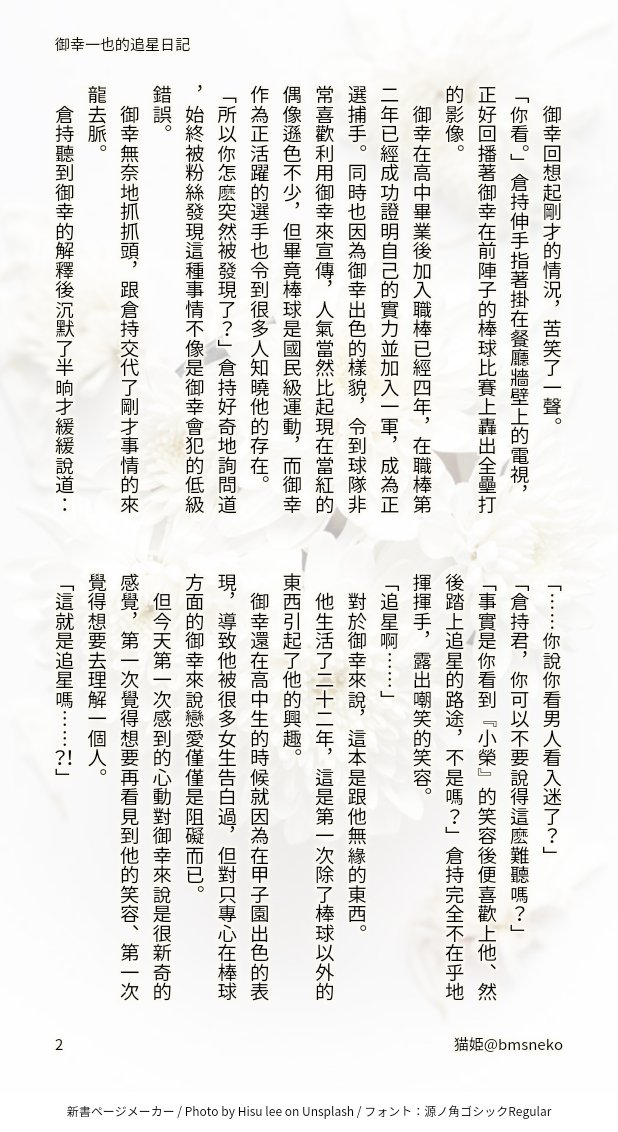 御幸一也的追星日記
　御幸回想起剛才的情況，苦笑了一聲。
「你看。」倉持伸手指著掛在餐廳牆壁上的電視，
正好回播著御幸在前陣子的棒球比賽上轟出全壘打
的影像。
　御幸在高中畢業後加入職棒已經四年，在職棒第
二年已經成功證明自己的實力並加入一軍，成為正
選捕手。同時也因為御幸出色的樣貌，令到球隊非
常喜歡利用御幸來宣傳，人氣當然比起現在當紅的
偶像遜色不少，但畢竟棒球是國民級運動，而御幸
作為正活躍的選手也令到很多人知曉他的存在。
「所以你怎麽突然被發現了？」倉持好奇地詢問道
，始終被粉絲發現這種事情不像是御幸會犯的低級
錯誤。
　御幸無奈地抓抓頭，跟倉持交代了剛才事情的來
龍去脈。
　倉持聽到御幸的解釋後沉默了半晌才緩緩說道：
「……你說你看男人看入迷了？」
「倉持君，你可以不要說得這麽難聽嗎？」
「事實是你看到『小榮』的笑容後便喜歡上他、然
後踏上追星的路途，不是嗎？」倉持完全不在乎地
揮揮手，露出嘲笑的笑容。
「追星啊……」
　對於御幸來說，這本是跟他無緣的東西。
　他生活了二十二年，這是第一次除了棒球以外的
東西引起了他的興趣。
　御幸還在高中生的時候就因為在甲子園出色的表
現，導致他被很多女生告白過，但對只專心在棒球
方面的御幸來說戀愛僅僅是阻礙而已。
　但今天第一次感到的心動對御幸來說是很新奇的
感覺，第一次覺得想要再看見到他的笑容、第一次
覺得想要去理解一個人。
「這就是追星嗎……?!」
2
猫姫@bmsneko
新書ページメーカー / Photo by Hisu lee on Unsplash / フォント：源ノ角ゴシックRegular